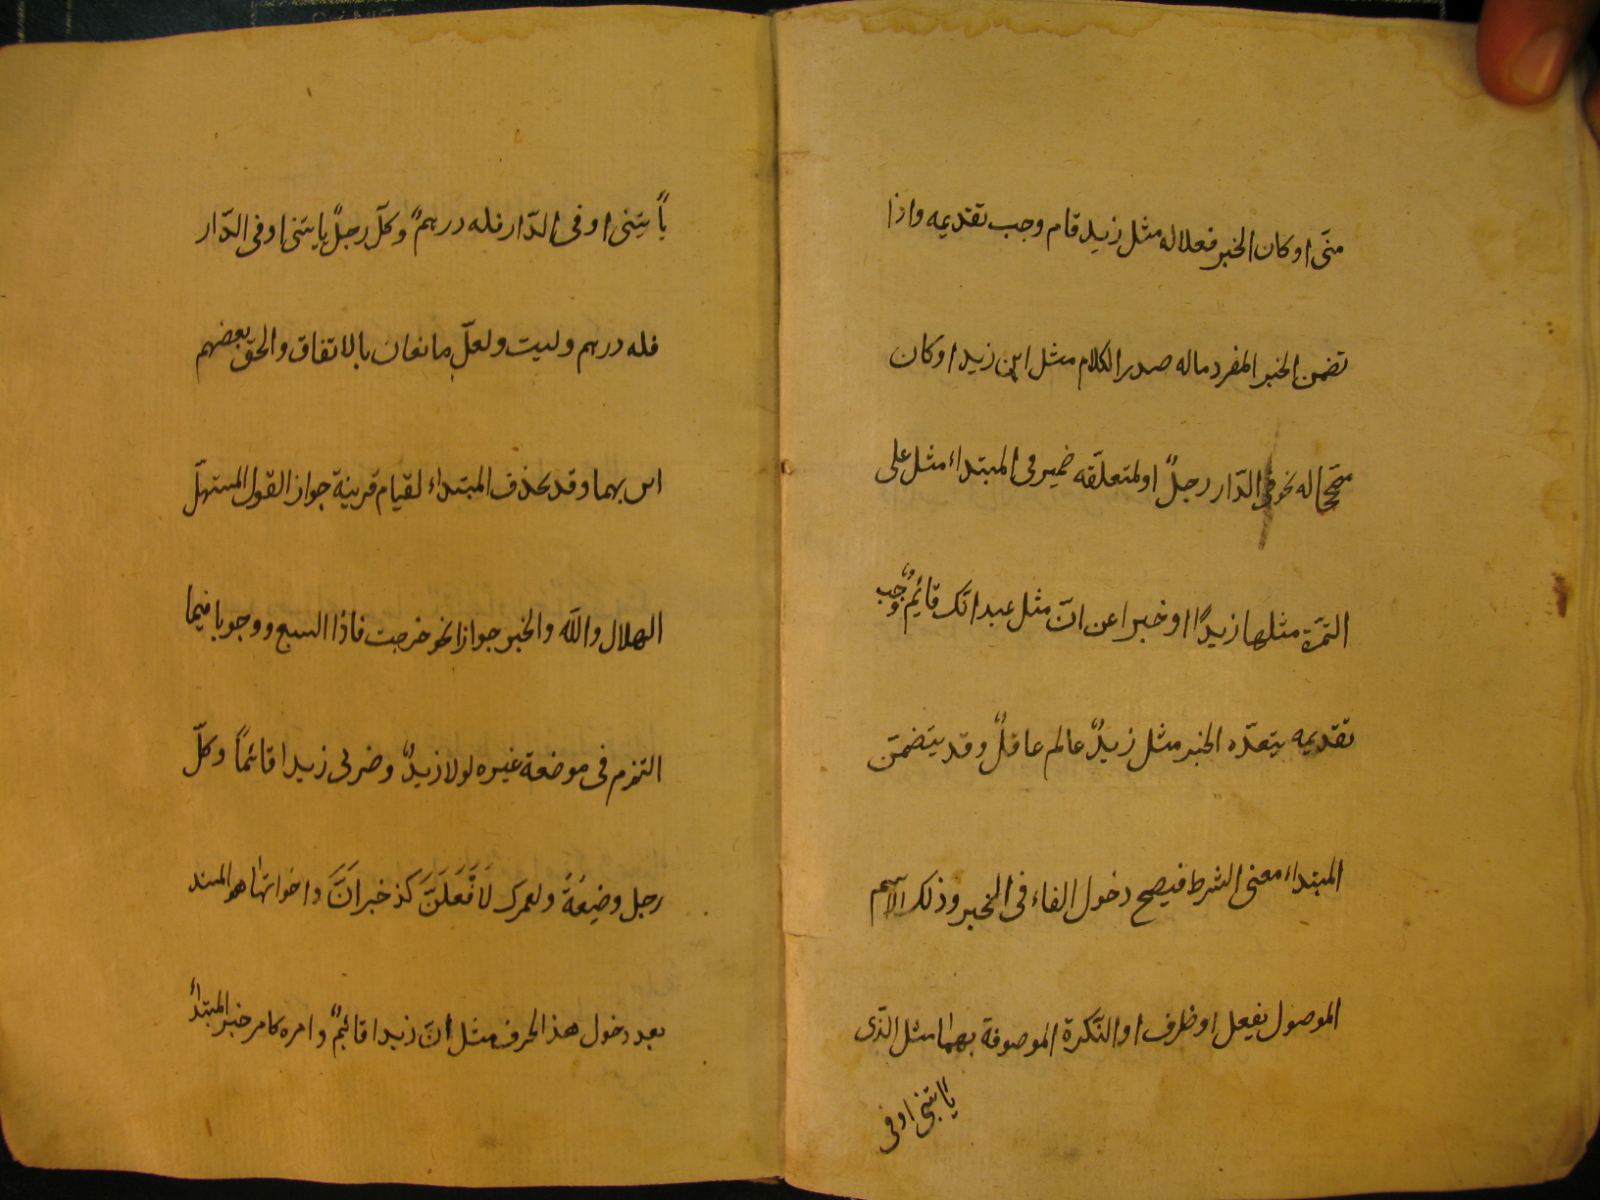 منّى او كان الخبر فعلا له مثل زيد قام وجب تقديمه واذا
تضمن الخبر المفرد ماله صدر الكلام مثل اين زيد او كان
مصححا له نحو فى الدّار رجلٌ او لمتعلّقه ضمير فى المبتداء مثل على
التمرة مثلها زيدًا او خبرا عن انّ مثل عندى انّك قائمٌ وجب
تقديمه يتعدّد الخبر مثل زيدٌ عالم عاقلٌ وقد يتضمّن
المبتداء معنى الشرط فيصح دخول الفاء فى الخبر وذلك الاسم
الموصول بفعل او ظرف او النّكرة الموصوفة بهما مثل الذّى
ياتنى او فى
ياتينى او فى الدّار فله درهمٌ وكلّ رجلٌ ياتنى او فى الدّار
فله درهم وليت ولعلّ مانعان بالاتفاق والحق بعضهم
ان بهما وقد يحذف المبتداء لقيام قرينة جوازا لقول المستهلّ
الهلال واللّه والخبر جوازا نحو خرجت فاذا السبع ووجوبا فيما
التزم فى موضعة غيره لولا زيدٌ وضربى زيدا قائمًا وكلّ
رجل وضيعَةً ولعمرك لَاَفْعَلَنَّ كذ خبر اَنَّ واخواتها هو المسند
بعد دخول هذا الحرف مثل انّ زيدا قائمٌ وامره كامر خبر المبتداء